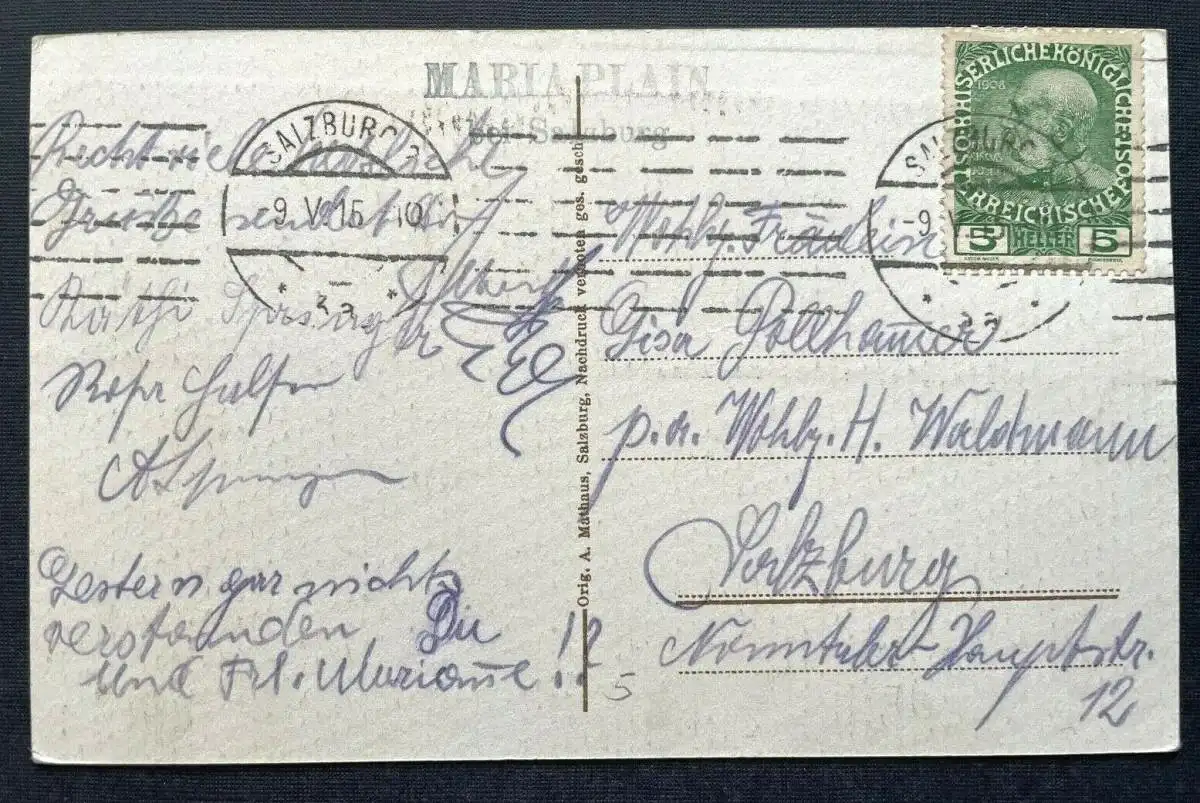 MARIA PLAIN
bei Salzburg
SALZBURG 2
-9. V. 15 10
Recht viele herzliche
Grüsse sendet Dir
Albert
Käthi Springer
Rosa
Gestern gar nicht
verstanden, Du
und Frl. Marianne !?
Orig. A. Mathaus, Salzburg, Nachdruck verboten ges. gesch.
KAISERLICHEKÖNIGLICHE ÖSTERREICHISCHE POST
1908
5 HELLER 5
SALZBURG
-9. V
Wohlg. Fräulein
Gisa Pollhamer
p. a. Wohlg. H. Waldmann
Salzburg
Nonntaler-Hauptstr.
12
5